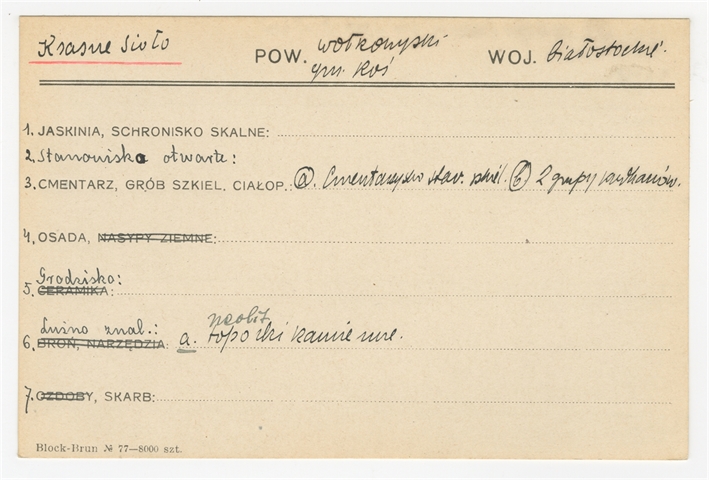 Krasne Sioło POW. wołkowyski WOJ. Białostockie.
gm. Roś
1. JASKINIA, SCHRONISKO SKALNE:
2. Stanowisko otwarte:
3. CMENTARZ, GRÓB SZKIEL. CIAŁOP.: a. Cmentarzysko staw. szkiel. b. 2 grupy kurhanów.
4. OSADA, NASYPY ZIEMNE:
Grodzisko:
5. CERAMIKA:
Luźno znal.: neolit.
6. BROŃ, NARZĘDZIA: a. toporki kamienne.
7. OZDOBY, SKARB:
Block-Brun № 77—8000 szt.